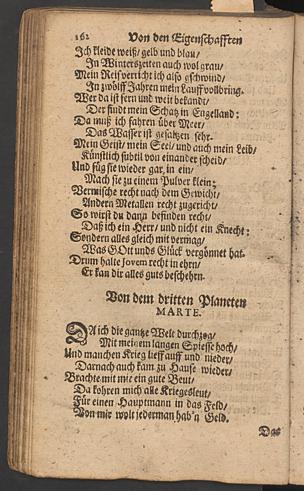 162 Von den Eigenschafften
Ich kleide weiß/ gelb und blau/
In Winterszeiten auch wol grau/
Mein Reiß verricht ich also gschwind/
In zwölff Jahren mein Lauff vollbring.
Wer da ist fern und weit bekandt/
Der findt mein Schatz in Engelland:
Da muß ich fahren über Meer/
Das Wasser ist gesaltzen sehr.
Mein Geist/ mein Seel/ und auch mein Leib/
Künstlich subtil von einander scheid/
Und füg sie wieder gar in ein/
Mach sie zu einem Pulver klein:
Vermische recht nach dem Gewicht/
Andern Metallen recht zugericht/
So wirst du dann befinden recht/
Daß ich ein Herr/ und nicht ein Knecht:
Sondern alles gleich mit vermag/
Was GOtt unds Glück vergönnet hat.
Drum halte Jovem recht in ehrn/
Er kan dir alles guts beschehrn.
Von dem dritten Planeten
MARTE.
DA ich die gantze Welt durchzog/
Mit meinem langen Spiesse hoch/
Und manchen Krieg lieff auff und nieder/
Darnach auch kam zu Hause wieder/
Brachte mit mir ein gute Beut/
Da kohren mich alle Kriegesleut/
Für einen Hauptmann in das Feld/
Von mir wolt jederman hab'n Geld.
Das